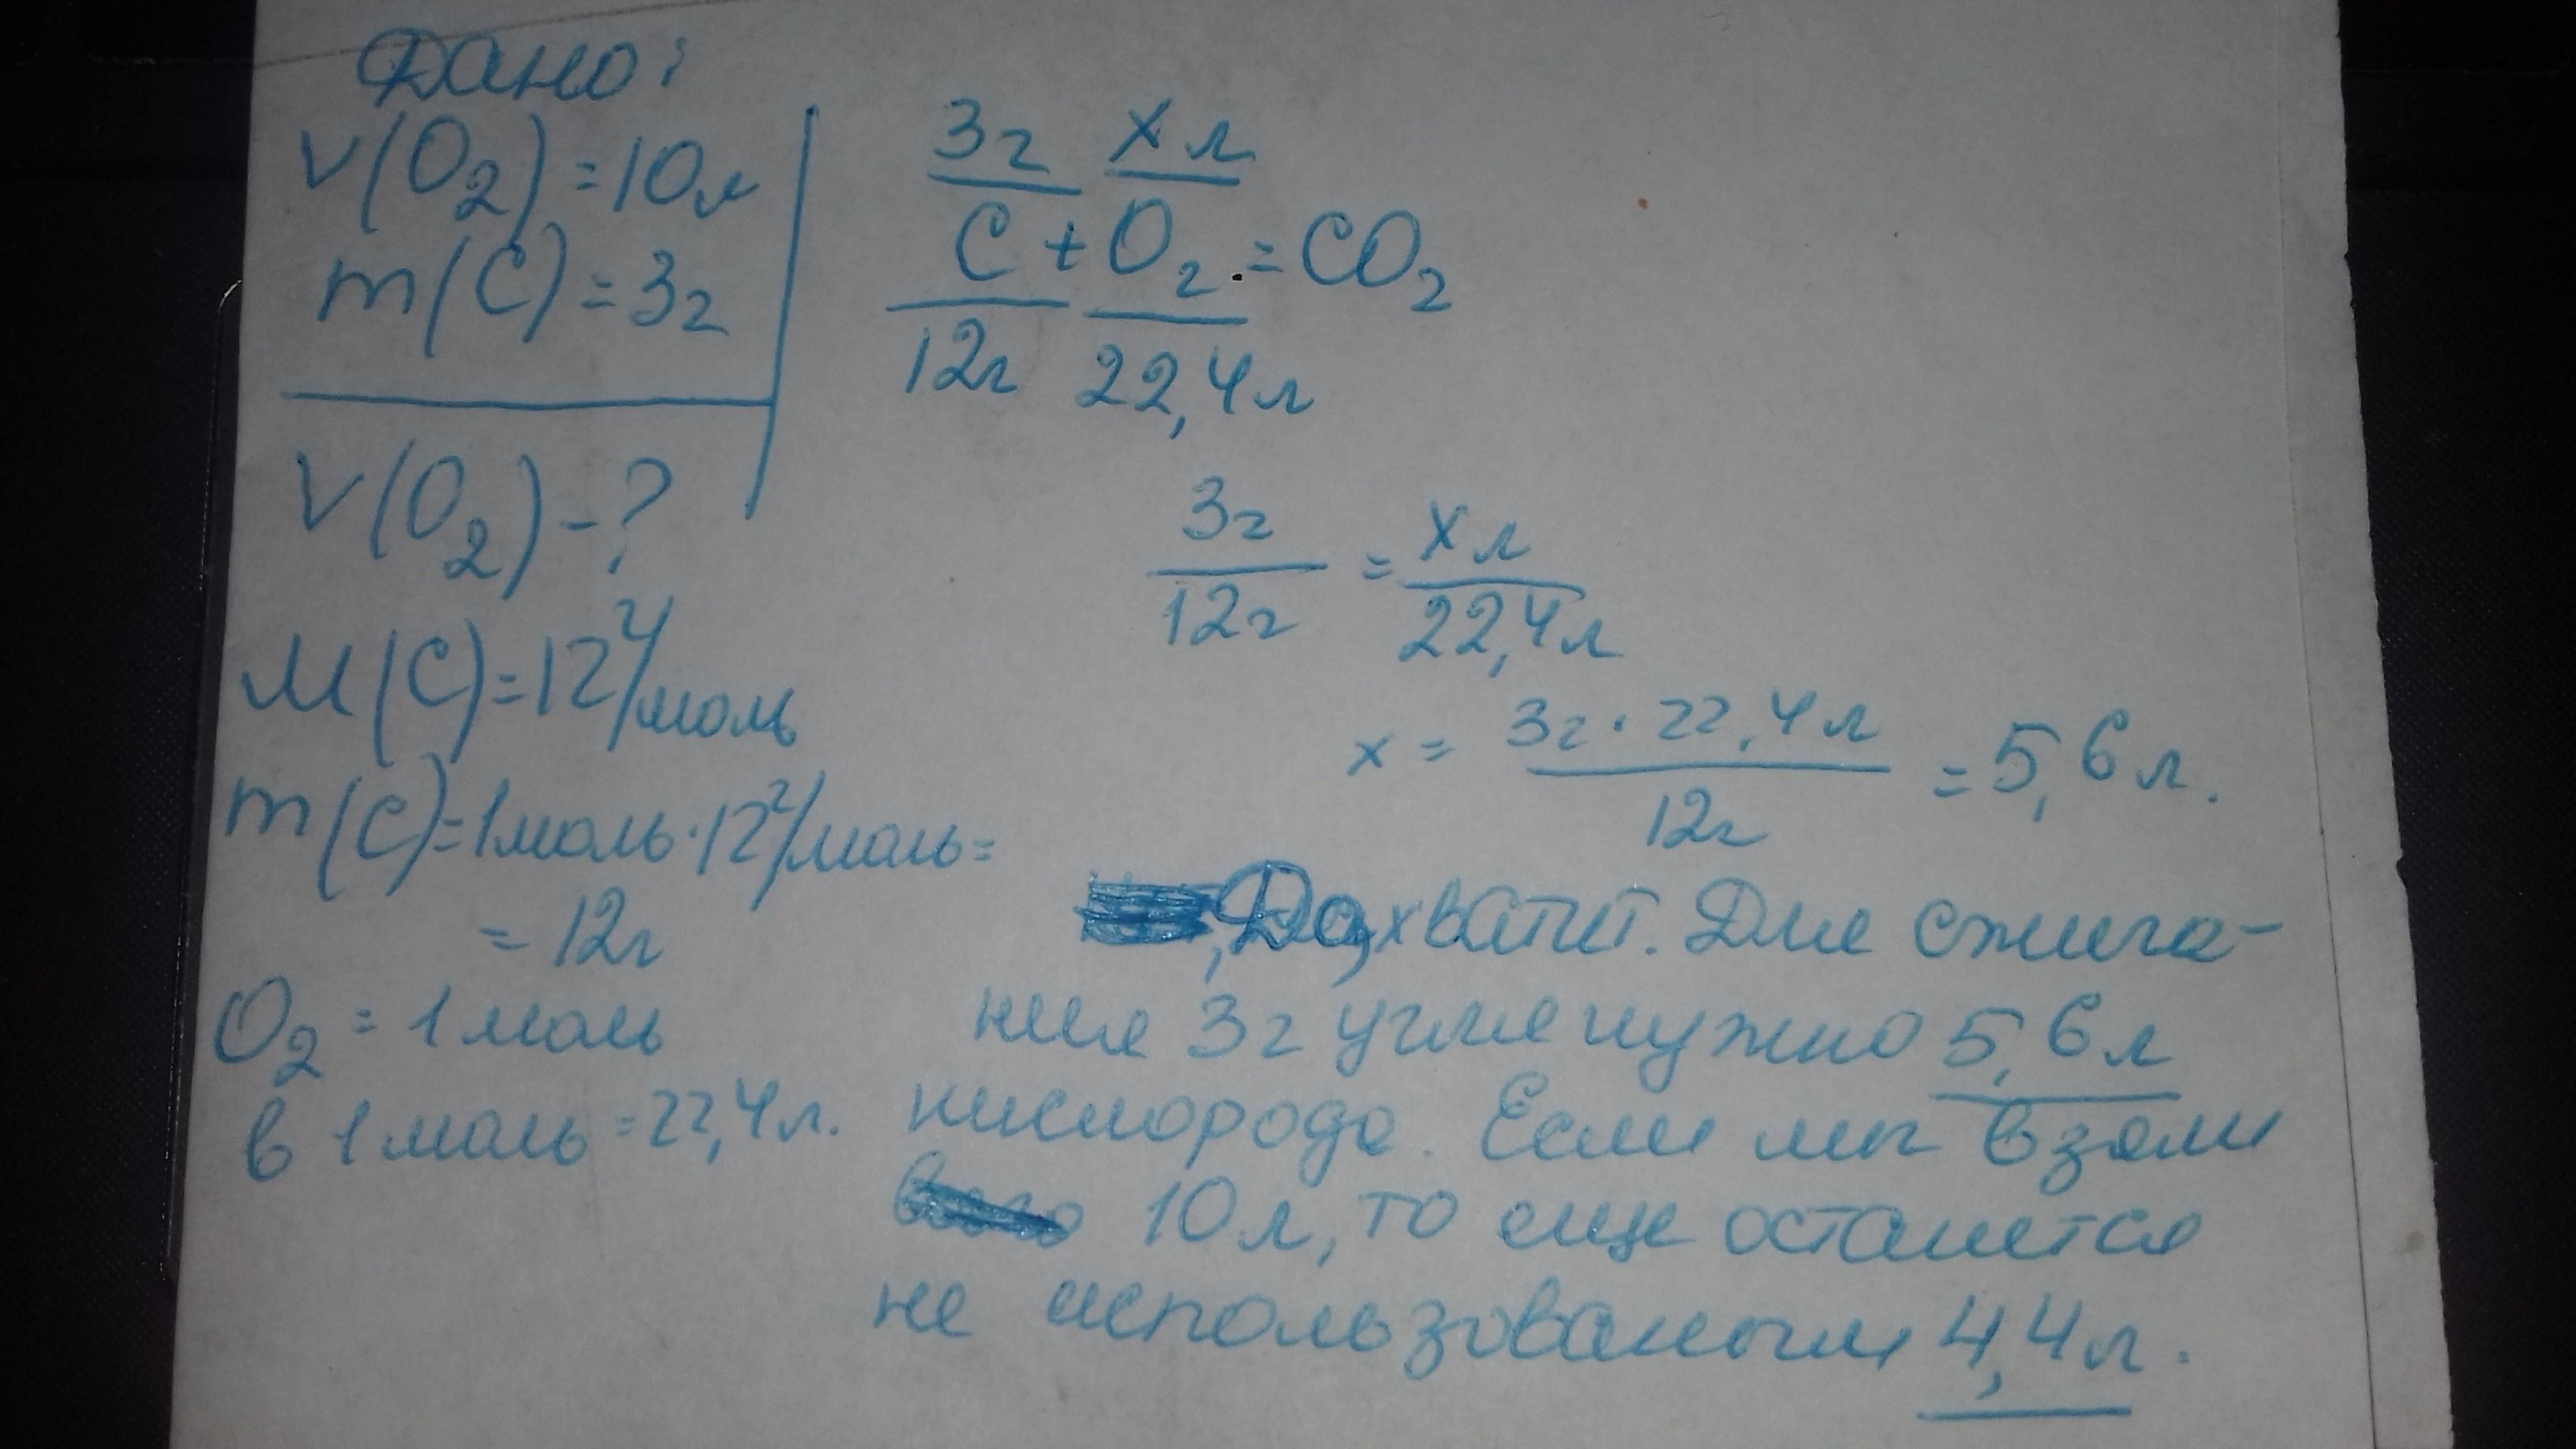 Дано:
V(O2) = 10л
m(C) = 3г
V(O2) - ?
M(C) = 12г/моль
m(C) = 1моль·12г/моль =
= 12г
O2 = 1 моль
в 1 моль = 22,4л.
3г хл
C + O2 = CO2
12г 22,4л
3г/12г = хл/22,4л
x = 3г·22,4л/12г = 5,6л.
Да, хватит. Для сжига-
ния 3г угля нужно 5,6л
кислорода. Если мы взяли
10л, то еще останется
не использованым 4,4л.